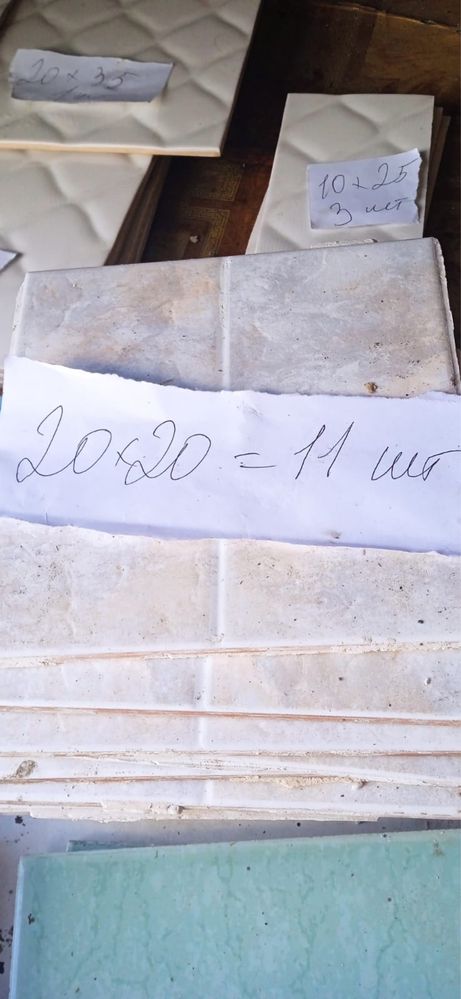 20 x 35
10 x 25
3 шт
20x20 = 11 шт